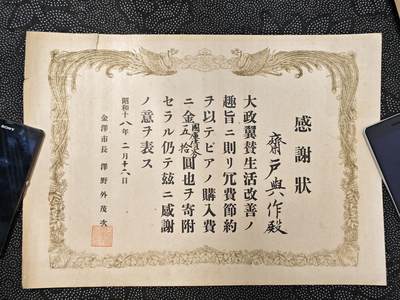 感謝狀
齋戶與作殿
大政翼賛生活改善ノ
趣旨ニ則リ冗費節約
ヲ以テピアノ購入費
ニ金五拾圓也ヲ寄附
セラル仍テ玆ニ感謝
ノ意ヲ表ス
昭和十八年二月十六日
金澤市長 澤野外茂次
SONY